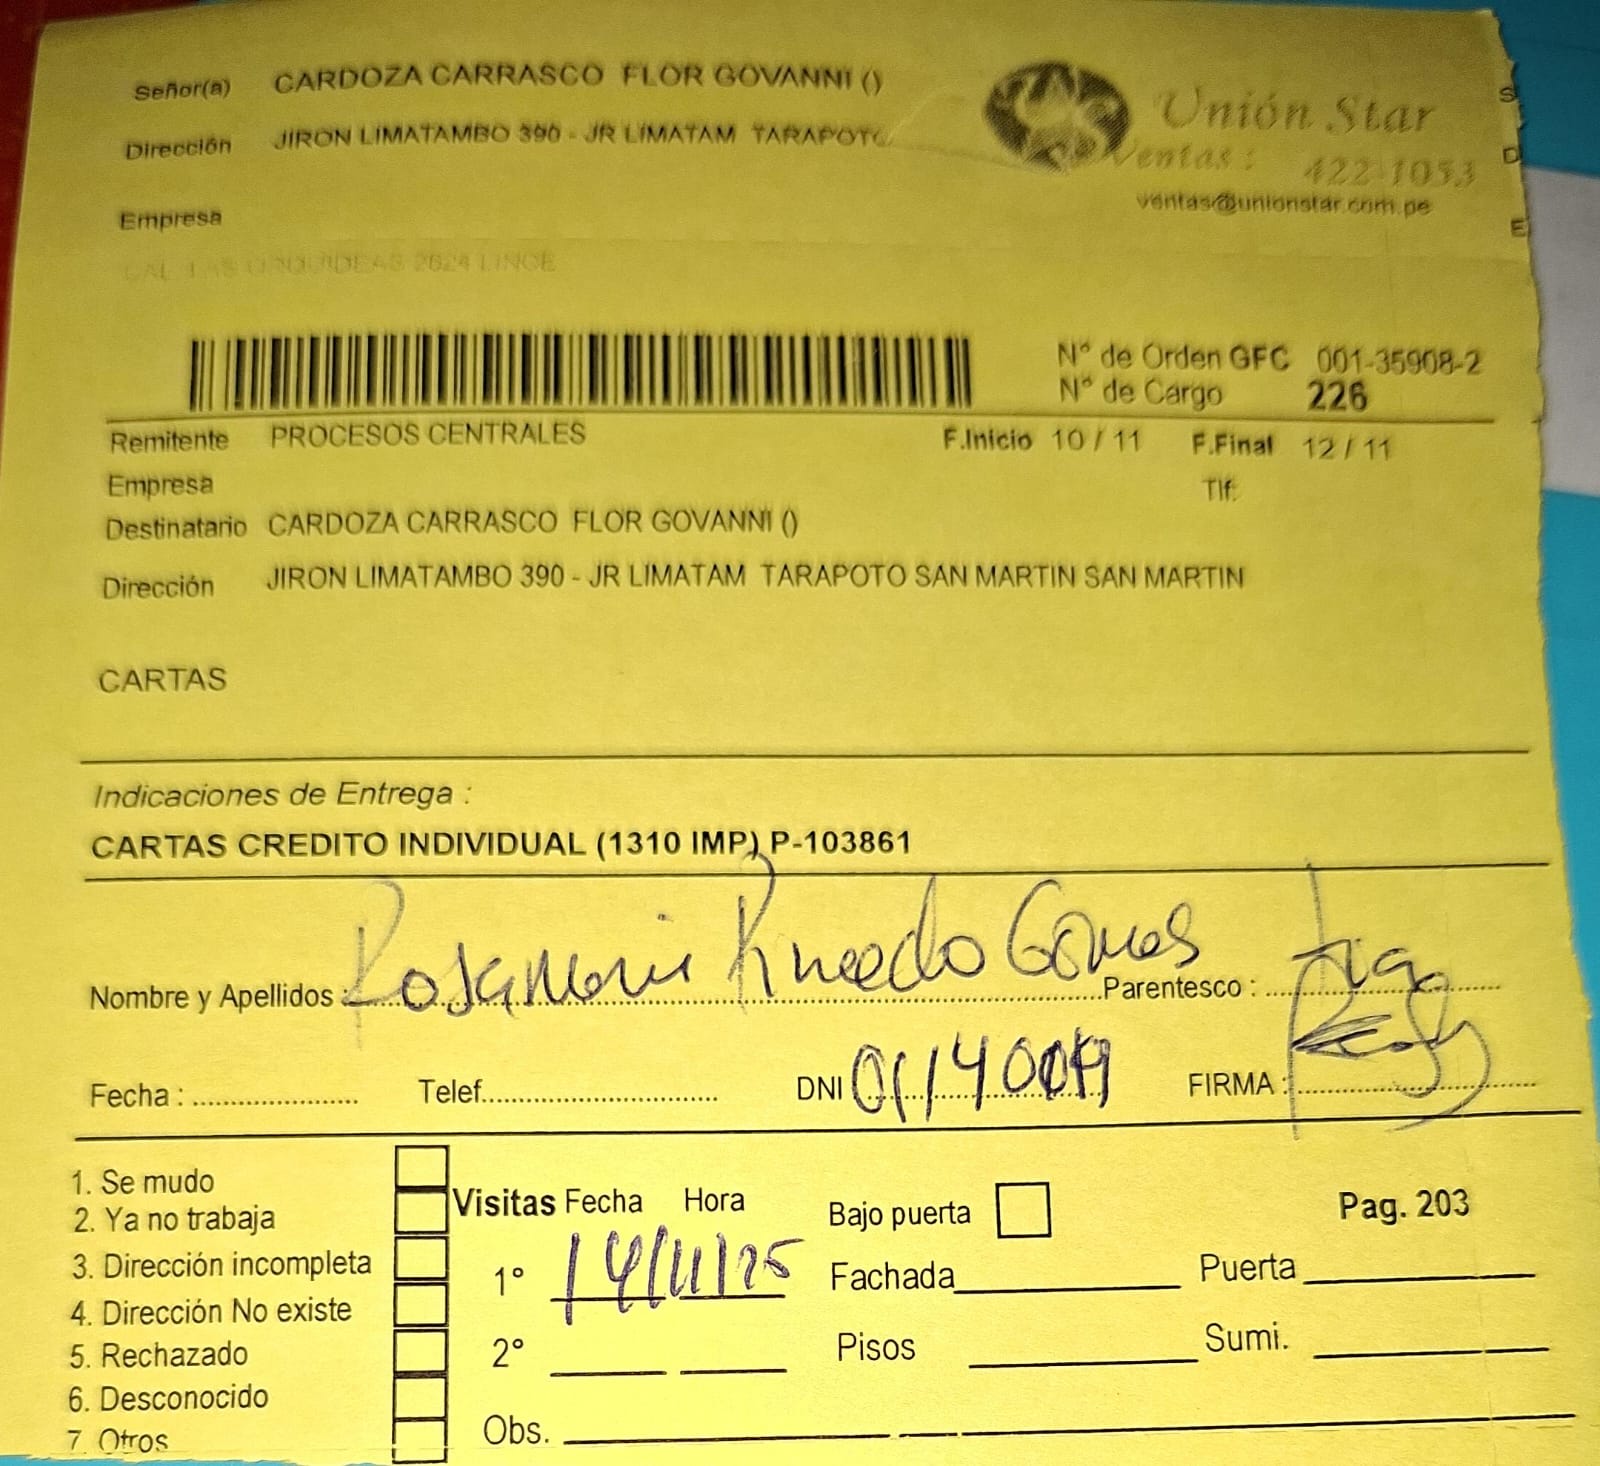 Señor(a) CARDOZA CARRASCO FLOR GOVANNI ()
Dirección JIRON LIMATAMBO 390 - JR LIMATAM TARAPOTO
Unión Star
Ventas : 422-1053
ventas@unionstar.com.pe
Empresa
CAL LAS ORQUIDEAS 2624 LINCE
S
D
E
Nº de Orden GFC 001-35908-2
Nº de Cargo 226
Remitente PROCESOS CENTRALES F.Inicio 10 / 11 F.Final 12 / 11
Empresa Tlf:
Destinatario CARDOZA CARRASCO FLOR GOVANNI ()
Dirección JIRON LIMATAMBO 390 - JR LIMATAM TARAPOTO SAN MARTIN SAN MARTIN
CARTAS
Indicaciones de Entrega :
CARTAS CREDITO INDIVIDUAL (1310 IMP) P-103861
Nombre y Apellidos : Parentesco :
Fecha : Telef. DNI FIRMA :
1. Se mudo
2. Ya no trabaja
3. Dirección incompleta
4. Dirección No existe
5. Rechazado
6. Desconocido
7. Otros
Visitas Fecha Hora
1° 14/11/25
2°
Obs.
Bajo puerta
Pag. 203
Fachada Puerta
Pisos Sumi.